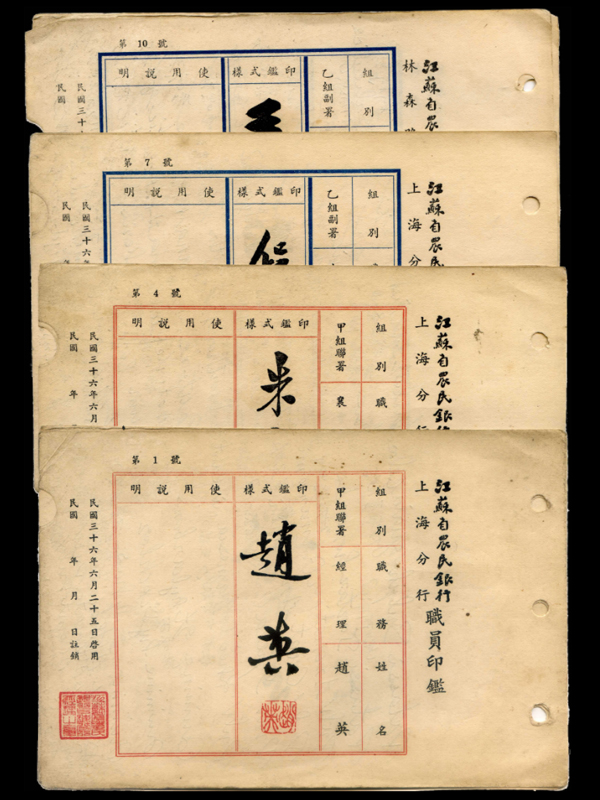 第10號
江蘇省農
林森
組別
乙組副署
印鑑式樣
使用說明
民國三十
民國
第7號
江蘇省農民
上海分
組別
乙組副署
印鑑式樣
使用說明
民國三十六年
民國
第4號
江蘇省農民銀行
上海分行
組別
職
甲組聯署
襄
印鑑式樣
朱
使用說明
民國三十六年六月
民國 年
第1號
江蘇省農民銀行
上海分行
職員印鑑
組別
職務
姓名
甲組聯署
經理
趙英
印鑑式樣
趙英
使用說明
民國三十六年六月二十五日啓用
民國 年 月 日註銷